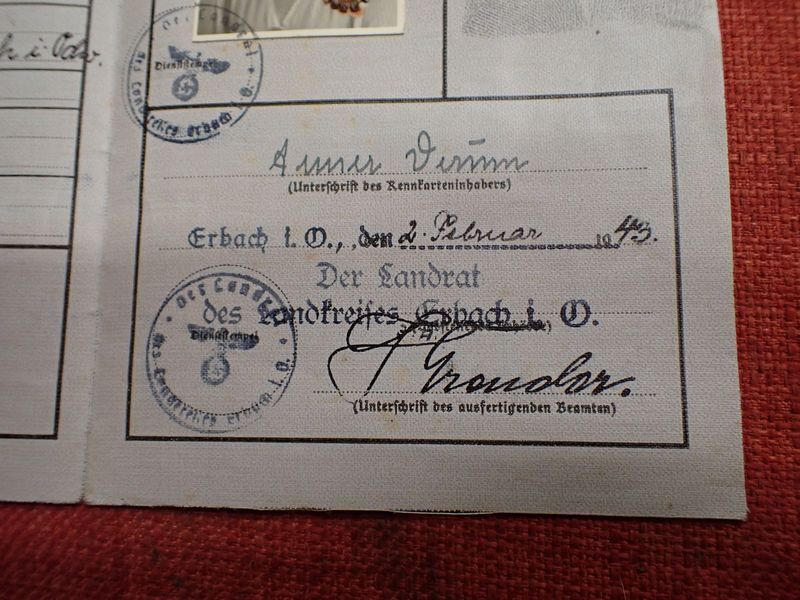 i. Odw.
Der Landrat
Dienststempel
des Landkreises Erbach i. O.
(Unterschrift des Kennkarteninhabers)
Erbach i. O., den 2. Februar 1943.
Der Landrat
des Landkreises Erbach i. O.
Der Landrat
Dienststempel
des Landkreises Erbach i. O.
(Unterschrift des ausfertigenden Beamten)